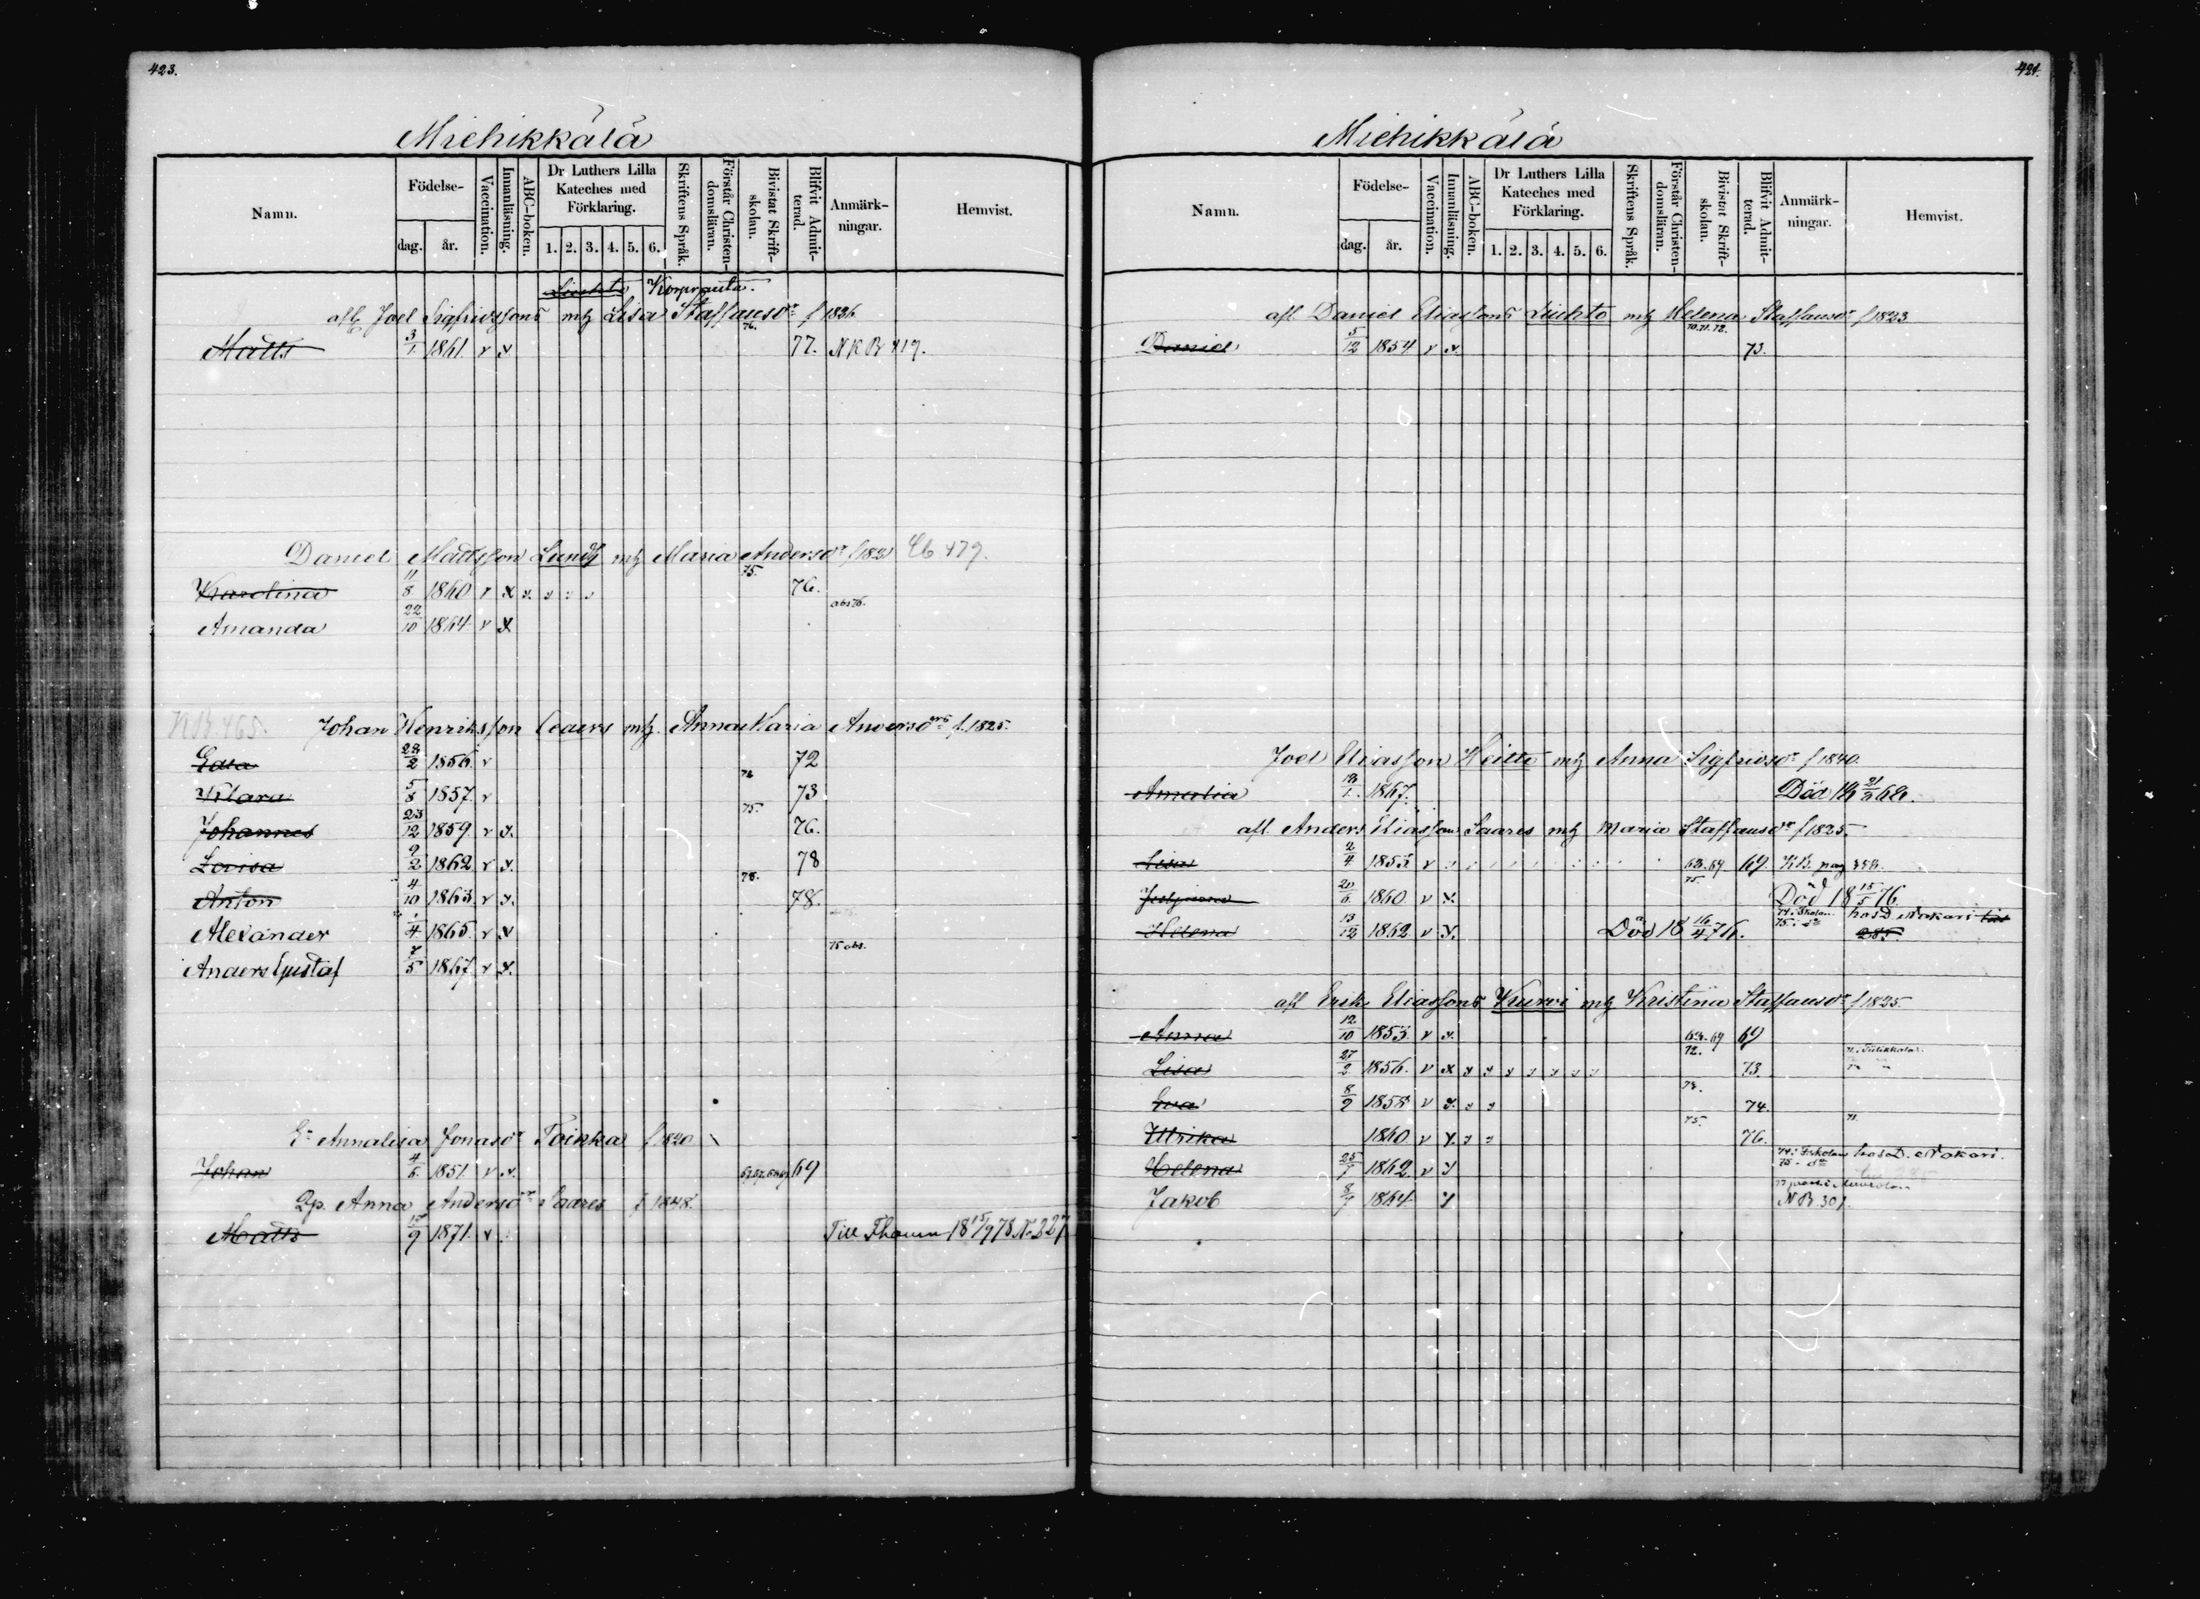 423.
Miehikkälä
Namn.
Födelse-
dag. år.
Vaccination.
Innanläsning.
ABC-boken.
Dr Luthers Lilla Kateches med Förklaring.
1. 2. 3. 4. 5. 6.
Skriftens Språk.
Förstår Christendomsläran.
Bivistat Skriftskolan.
Blifvit Admitterad.
Anmärkningar.
Hemvist.
Luchto Korprauta.
afl. Joel Sigfridssons mh Lisa Staffansdr f 1826
Matts 3/1 1861. v x 76. 77. NKB 419.
Daniel Mattsson Lundh mh Maria Andersdr f 1821 Kb 479.
Karolina 11/8 1860 v x x 75. 76.
Amanda 22/10 1864 v x abs 76.
KB. 465. Johan Henriksson Ceders mh. Anna Maria Andersdr f. 1825.
Edla 28/2 1856. v 72
Klara 5/8 1857. v 73
Johannes 23/12 1859 v x. 75. 76.
Lovisa 9/2 1862 v x. 78
Anton 4/10 1863 v x. 78. 78.
Alexander 1/4 1865. v x
Anders Gustaf 7/5 1867 v x. 75 abs.
Annalisa Jonasdr Toikka f 1820
Johan 4/6 1851. v x. 69
Qp. Anna Andersdr Saares f 1848.
Matts 15/9 1871. v Till Fhamn 18 15/9 78 No 227
421.
Miehikkälä
Namn.
Födelse-
dag. år.
Vaccination.
Innanläsning.
ABC-boken.
Dr Luthers Lilla Kateches med Förklaring.
1. 2. 3. 4. 5. 6.
Skriftens Språk.
Förstår Christendomsläran.
Bivistat Skriftskolan.
Blifvit Admitterad.
Anmärkningar.
Hemvist.
afl. Daniel Eliassons Luchto mh Helena Staffansdr f 1823
Daniel 5/12 1854 v x. 70.71.72. 73.
Joel Eliasson Heitto mh Anna Sigfridsdr f 1840.
Amalia 1867. Död 18 21/2 68.
afl. Anders Eliasson Saares mh Maria Staffansdr f 1825.
Lisa 2/4 1853 v 68.69 69. KB. pag 358.
20/6 1860 v x. 75. Död 18 15/5 76
Helena 13/12 1862 v x. Död 18 16/4 76. 74. Fskolan hos D Nokari
75. do 285
afl Erik Eliassons Kurvi mh Kristina Staffansdr f 1825.
Anna 12/10 1853. v x. 68.69 69
Lisa 27/2 1856. v x x x x x x x x 72. 73.
Eva 8/2 1858 v x. x x 74.
Ulrika 1860 v x. x x 75. 76. 71.
Helena 25/7 1862 v x 74. Fskolan hos D. Nokari.
75. do
Jakob 8/7 1864. x NB. 301.